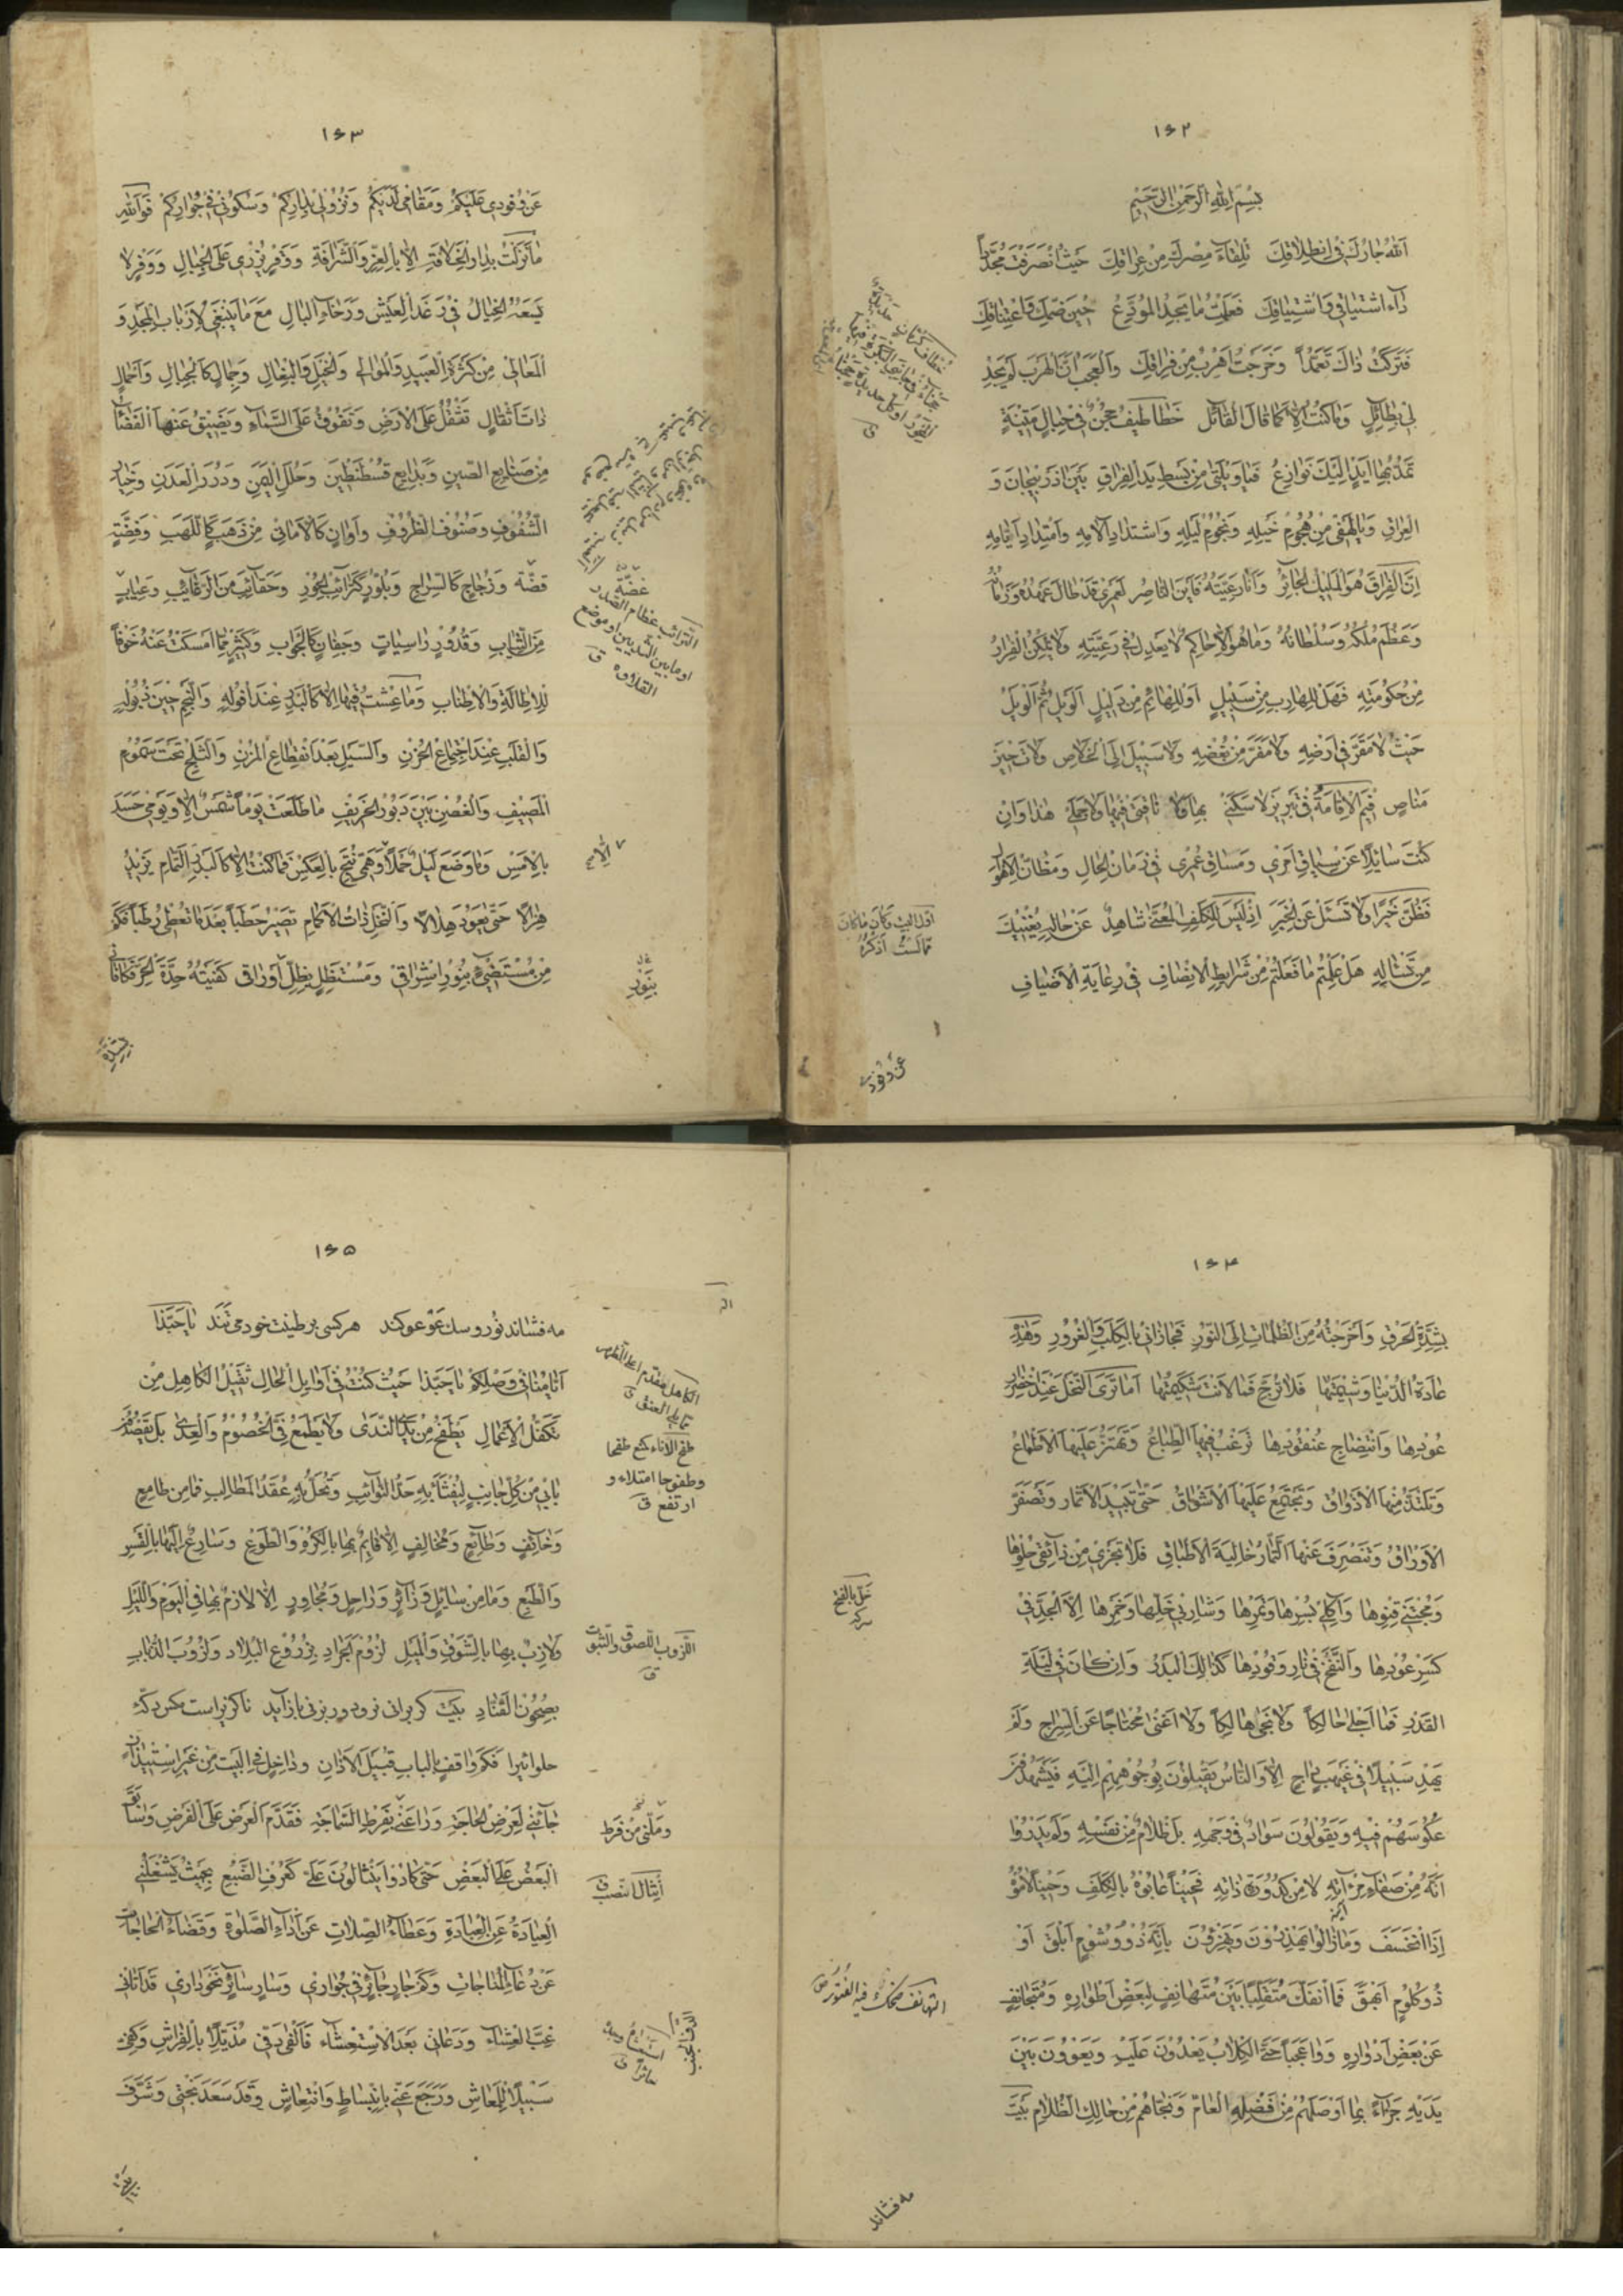 ۱۶۲
بِسْمِ اللهِ الرَّحْمٰنِ الرَّحِيمِ
اَللهُ جَارُكَ فِي انْطِلَاقِكَ تِلْقَاءَ مِصْرِكَ مِنْ عِرَاقِكَ حَيْثُ انْصَرَفْتَ
دَاء اشتياقي واشتياقك فعلمتُ ما يجد المودّع حين ضمك واعتناقك
فتركت ذاك تعمداً وخرجت اهرب من فراقك والعجب ان الهرب لم يجد
لي بطائل وما كنت الا كما قال القائل خطاطيف حجن في حبال متينة
تمد بها ايد اليك نوازع فيا ويلتي من بسط يد الفراق بين اذربيجان و
العراق ويا لهفي من هجوم خيله ونجوم ليله واشتداد آلامه وامتداد ايامه
ان الفراق هو المليك الجائر وانا رعيته فاين الناصر لعمري قد طال عهده وزمانه
وعظم ملكه وسلطانه وما هو الا حاكم لا يعدل في رعيته ولا يمكن الفرار
من حكومته فهل للهارب من سبيل او للهائم من دليل الويل ثم الويل
حيث لا مقر في ارضه ولا مفر من بغضه ولا سبيل الى الخلاص ولا تحيز
مناص فيم الاقامة في تبريز لا سكني بها ولا ناقتي فيها ولا جملي هذا وان
كنت سائلا عن سياق امري ومساق عمري في زمان الحال ومظان الاهوال
فظن خيرا ولا تسئل عن الخبر اذ ليس للكلف المعنّى شاهد عن حاله يغنيك
من تسئاله هل علمتم ما فعلتم من شرايط الانصاف في رعاية الاضياف
اول البيت وكان ما كان
مما لست اذكره
عن وفودي
۱۶۳
عن وفودي عليكم ومقامي لديكم ونزولي بدياركم وسكوني في جواركم فوالله
ما نزلت بدار الخلافة الا بالعز والشرافة ووقر يزرى على الجبال ووفر لا
يسعه الخيال في رغد العيش ورخاء البال مع ما ينبغي لارباب المجد و
المعالي من كثرة العبيد والموالي والخيل والبغال وجمال كالجبال واحمال
ذات اثقال تثقل على الارض وتفوق على السماء ويضيق عنها الفضاء
من صنايع الصين وبدايع قسطنطين وحلل اليمن ودرر العدن وخيار
الشفوف وصنوف الظروف واوان كالاماني من ذهب كاللهب وفضة
قضة وزجاج كالسراج وبلور كترائب الحور وحقائب من الرغائب وعياب
من الثياب وقدور راسيات وجفان كالجواب وكثير مما امسكت عنه خوفاً
للاطالة والاطناب وما عشت فيها الا كالبدر عند افوله والنجم حين ذبوله
والقلب عند اجتماع الحزن والسيل بعد انقطاع المزن والثلج تحت سموم
المصيف والغصن بين دبور الخريف ما طلعت يوماً شمس الا ويومي حسد
بالامس وما وضع ليل حملا وهمي نتج بالعكس فما كنت الا كالبدر التمام يزيد
هزالا حتى يعود هلالا والنخل ذات الاكمام تصير حطباً بعد ما تعطي رطباً فكم
من مستضيء بنور اشراقي ومستظل بظل اوراقي كفيته حدة الحر فكافاني
غضّة
الترائب عظام الصدر
او ما بين الثديين او موضع
القلادة ق
بنور
بشدة
۱۶۴
بشدة الحرق واخرجته من الظلمات الى النور فجازاني بالكلب والغرور وهذه
عادة الدنيا وشيمتها فلا ترج فما لانت شكيمتها اما ترى النخل عند اخضرار
عودها وانتضاج عنقودها ترغب فيها الطباع وتهتز عليها الاطماع
وتلتذ منها الاذواق وتجتمع عليها الاشواق حتى تبيد الاثمار وتصفر
الاوراق وتنصرف عنها الثمار خالية الاطباق فلا تجزى من ذائقي حلوها
ومجتني قنوها وآكلي بسرها وتمرها وشاربي خلها وخمرها الا الجد في
كسر عودها والنفخ في نار وقودها كذالك البدر وان كان في ليلة
القدر فما اجلى حالكاً ولا نجى هالكاً ولا اغنى محتاجا عن السراج ولم
يهد سبيلا في غيهب داج الا والناس يقبلون بوجوههم اليه فيشهد
عكوسهم فيه ويقولون سواد في وجهه بل ظلام من نفسه ولم يدروا
انه من صفاء مرآته لا من كدورة ذاته فحيناً عابوه بالكلف وحيناً لاموه
اذا انخسف وما زالوا يهذرون ويهزفون بانه ذو وشوم ابلق او
ذو كلوم ابهق فما انفك متقلباً بين متهانف لبعض اطواره ومتجانف
عن بعض ادواره وواعجباً حتى الكلاب يعدون عليه ويعوون بين
يديه جزاءً بما اوصلهم من فضله العام ونجاهم من حالك الظلام بيت
خل بالفتح
سركه
التهانف ضحك فيه الفتور ص
مه فشاند
۱۶۵
مه فشاند نور و سك عوعو كند هر كسى بر طينت خود مى تند يا حبذا
ايامنا في وصلكم يا حبذا حيث كنت في اوايل الحال ثقيل الكاهل من
تكفل الاعمال يطفح من يدي الندى ولا يطمع في الخصوم والعدى بل يقصد
بابي من كل جانب ليفثأ به حد النوائب وتحل به عقد المطالب فما من طامع
وخائف وطائع ومخالف الا قايم بها بالكره والطوع وسارع اليها بالقسر
والطبع وما من سائل وزائر وراحل ومجاور الا لازم بها في اليوم والليل
ولازب بها بالشوق والميل لزوم الجراد بزروع البلاد ولزوب الذباب
بصحون القناد بيت گر برانى نرود ور برنى باز آيد ناگزير است مگس دكّه
حلوائيرا فكم واقف بالباب قبيل الاذان وداخل في البيت من غير استيذان
جائني لعرض الحاجة وراعني بفرط السماجة فقدم العرض على الفرض
البعض على البعض حتى كادوا ينثالون علي كعرف الضبع بحيث يشغلني
العيادة عن العبادة وعطاء الصلات عن اداء الصلوة وقضاء الحاجات
عن دعاء المناجات وكم جار جائر في جواري وسار سائر نحو داري قد اتاني
غب العشاء ودعاني بعد الاستغشاء فالفى دفي مذيلاً بالفراش وكفى
سبيلاً للمعاش ورجع عني بانبساط وانتعاش وقد سعد بختي وشرف
الكاهل مقدم اعلى الظهر
مما يلي العنق ق
طفح الاناء كمنع طفحا
وطفوحا امتلاء و
ارتفع ق
اللزوب اللصوق والثبوت
ق
وملّني من فرط
انثال انصب ق